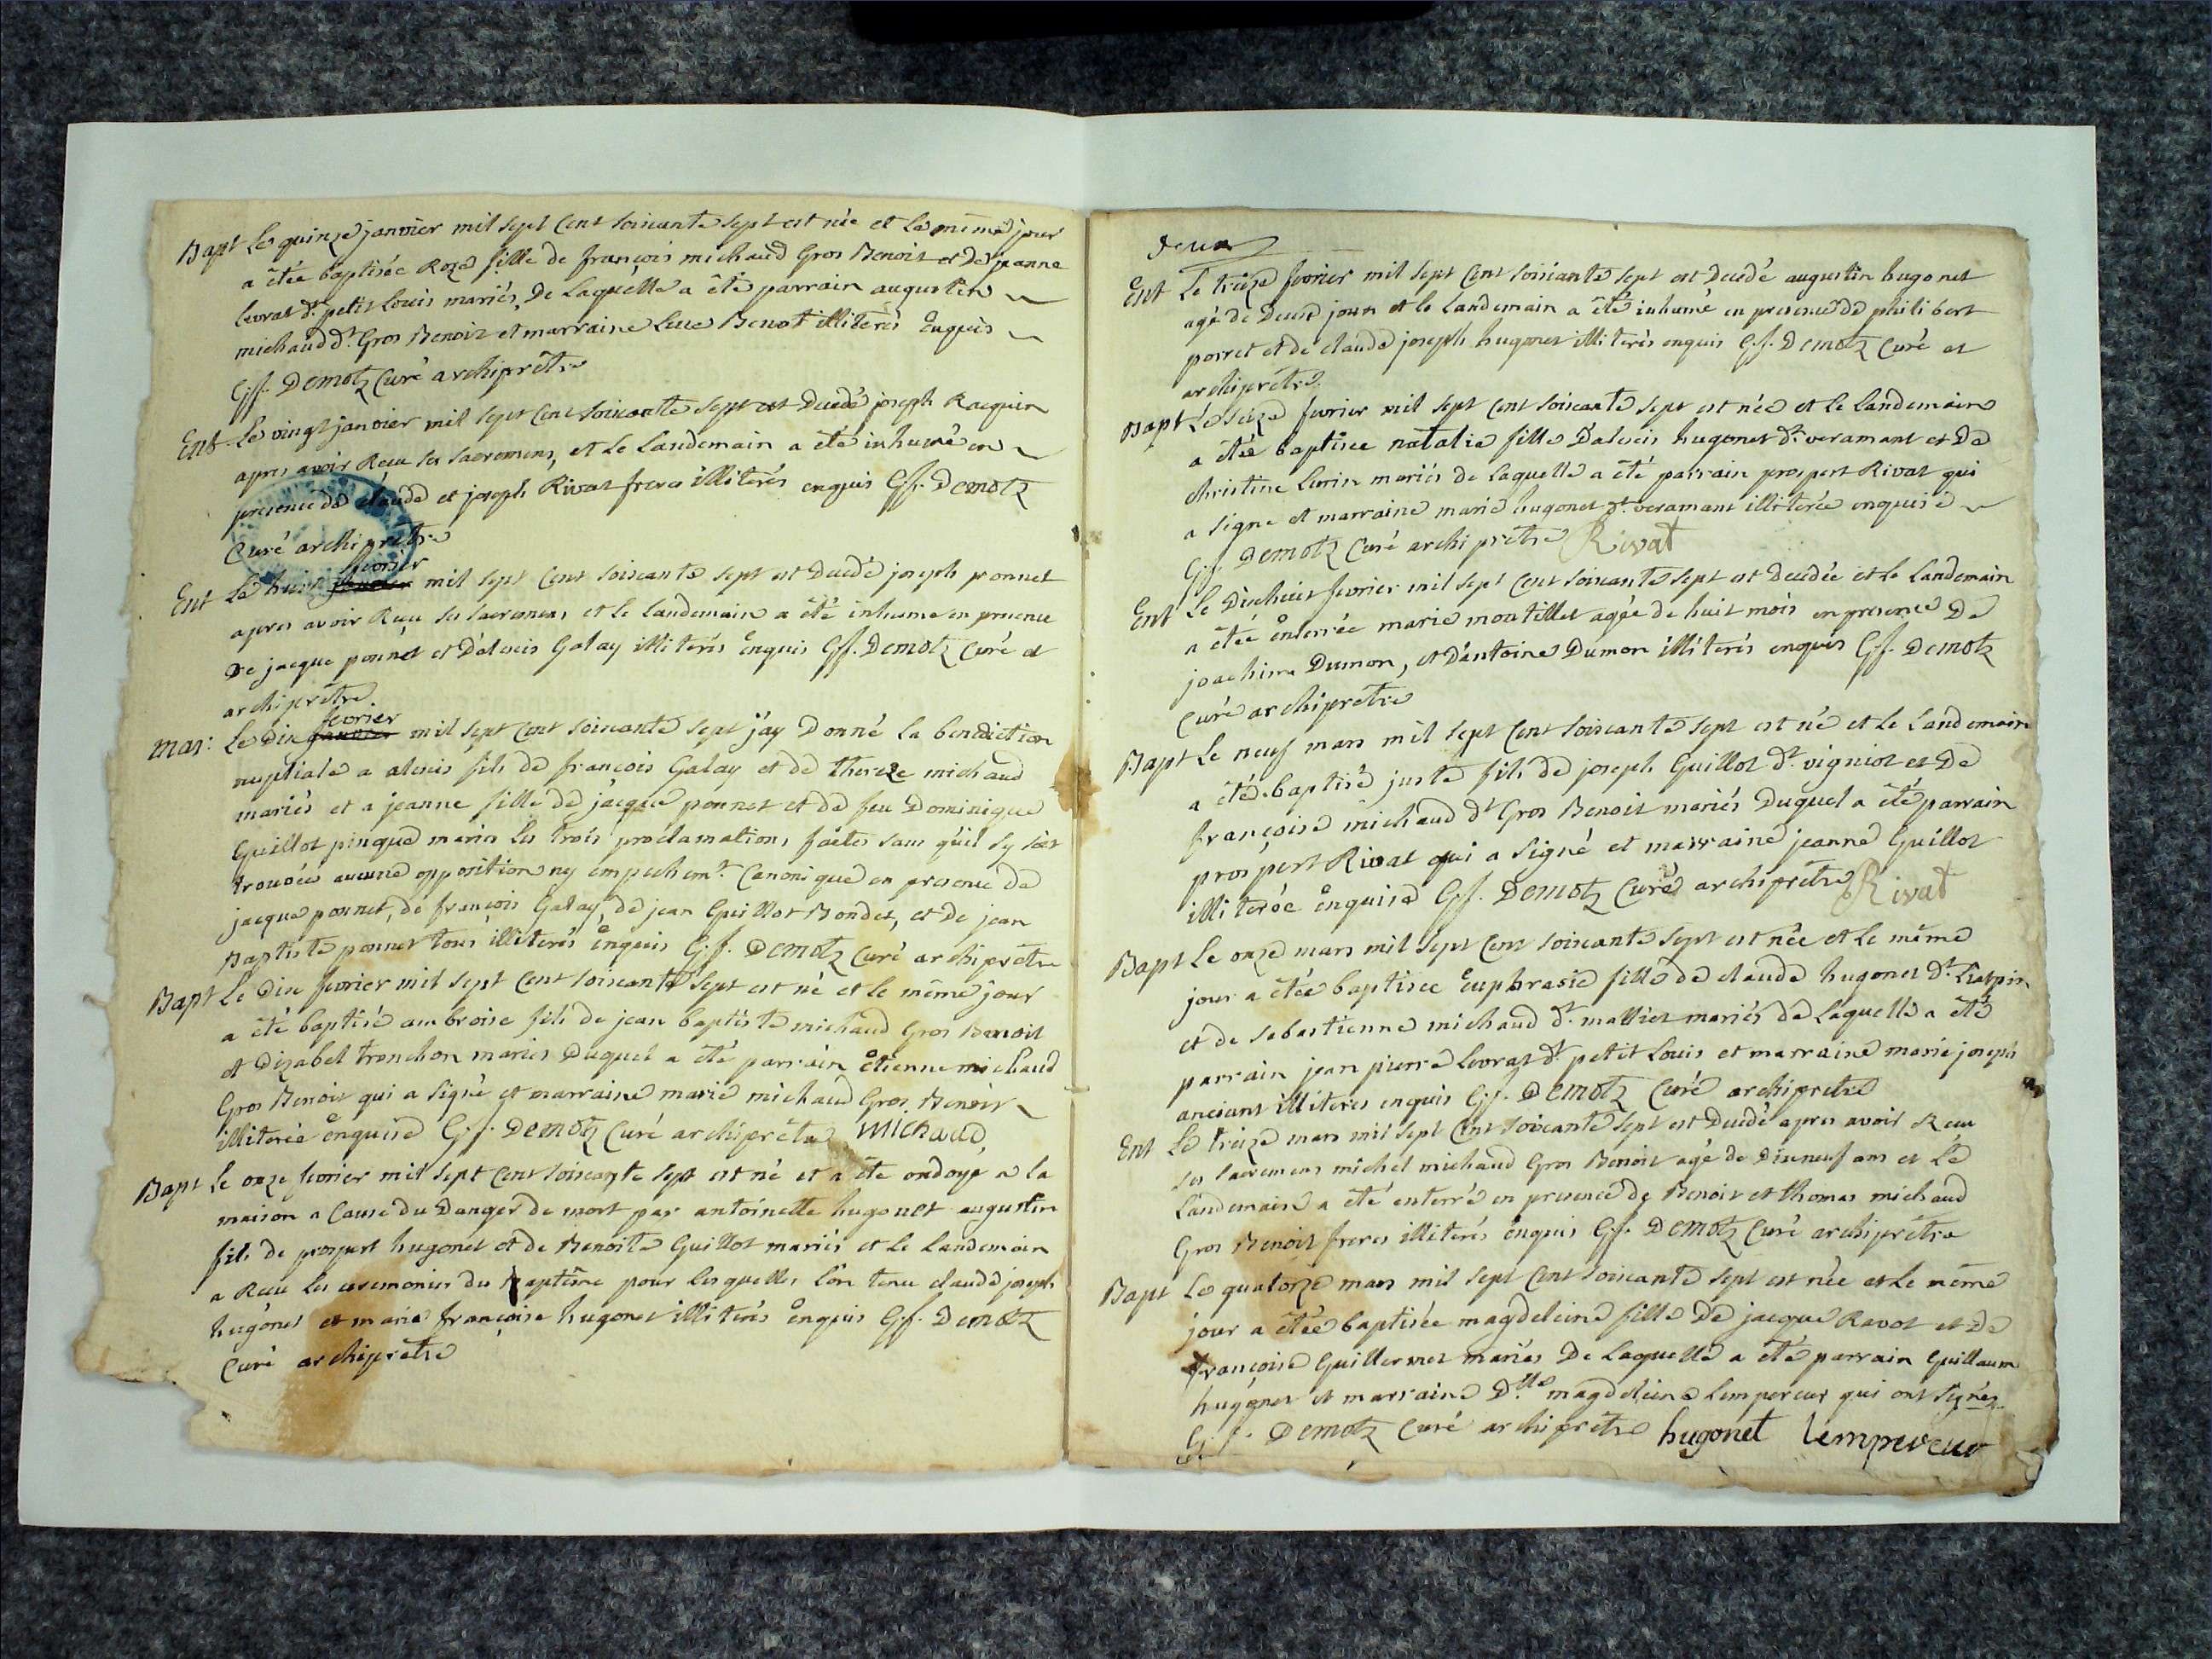 Bapt Le quinze janvier mil sept Cent soixante sept est née et le même jour
a étée baptisée Roze fille de françois michaud Gros Benoit et de jeanne
levrat dt. petit Louis mariés, De laquelle a été parrain augustin
michaud dt. Gros Benoit et marraine Benoit illiterés enquis
G.f. Demotz Curé archiprêtre
Ent Le vingt janvier mil sept Cent soixante sept est Decedé joseph Racquin
apres avoir Reçu ses sacremens, et le landemain a été inhumé en
presence de claude et joseph Rivat freres illiterés enquis G.f. Demotz
Curé archiprêtre
fevrier
Ent Le huit janvier mil sept Cent soixante sept est Decedé joseph ponnet
apres avoir Reçu ses sacremens et le landemain a été inhume en presence
De jacque ponnet et D'alexis Galay illiterés enquis G.f. Demotz Curé et
archiprêtre
fevrier
mar: Le Dix janvier mil sept Cent soixante sept j'ay Donné la benediction
nuptiale a alexis fils de françois Galay et de thereze michaud
mariés et a jeanne fille de jacque ponnet et de feu Dominique
Guillot pinque mariés les trois proclamations faites sans qu'il sy soit
trouvée aucune opposition ny empechemt. Canonique en presence de
jacque ponnet, de françois Galay, de jean Guillot Bondet, et de jean
Baptiste ponnet tous illiterés enquis G.f. Demotz Curé archiprêtre
Bapt Le Dix fevrier mil sept Cent soixante sept est né et le même jour
a été baptisé ambroise fils de jean baptiste michaud Gros Benoit
et Dizabel tronchon mariés Duquel a été parrain étienne michaud
Gros Benoit qui a signé et marraine marie michaud Gros Benoit
illiterée enquise G.f. Demotz Curé archiprêtre Michaud
Bapt Le onze fevrier mil sept Cent soixante sept est né et a été ondoyé a la
maison a Cause du Danger de mort par antoinette hugonet augustin
fils de prospert hugonet et de Benoite Guillot mariés et le landemain
a Reçu les ceremonies du Baptême pour lesquelles l'on tenu claude joseph
hugonet et marie françoise hugonet illiterés enquis G.f. Demotz
Curé archiprêtre
deux
Ent Le treize fevrier mil sept Cent soixante sept est Decedé augustin hugonet
agé de Deux jours et le landemain a été inhumé en presence de philibert
porret et de claude joseph hugonet illiterés enquis G.f. Demotz Curé et
archiprêtre
Bapt Le seize fevrier mil sept Cent soixante sept est née et le landemain
a étée baptisee natalie fille D'alexis hugonet dt. veramant et De
christine mariés de laquelle a été parrain prospert Rivat qui
a signe et marraine marie hugonet dt. veramant illiterée enquise
G.f. Demotz Curé archiprêtre Rivat
Ent Le Dixhuit fevrier mil sept Cent soixante sept est Decedée et le landemain
a étée enterrée marie montillet agée de huit mois en presence De
joachim Dumon, et D'antoine Dumon illiterés enquis G.f. Demotz
Curé archiprêtre
Bapt Le neuf mars mil sept Cent soixante sept est né et le landemain
a été baptisé juste fils de joseph Guillot dt. vigniot et De
françoise michaud dt Gros Benoit mariés Duquel a été parrain
prospert Rivat qui a signé et marraine jeanne Guillot
illiterée enquise G.f. Demotz Curé archiprêtre Rivat
Bapt Le onze mars mil sept Cent soixante sept est née et le même
jour a étée baptisee Euphrasie fille de claude hugonet dt.
et de sebastienne michaud dt. mallier mariés de laquelle a été
parrain jean pierre levrat dt. petit Louis et marraine marie joseph
anciant illiteres enquis G.f. Demotz Curé archiprêtre
Ent Le treize mars mil sept Cent soixante sept est Decedé apres avoir Reçu
ses sacremens michel michaud Gros Benoit agé de Dixneuf ans et Le
landemain a été enterré en presence de Benoit et thomas michaud
Gros Benoit freres illiterés enquis G.f. Demotz Curé archiprêtre
Bapt Le quatorze mars mil sept Cent soixante sept est née et le même
jour a étée baptisée magdeleine fille De jacque Ravot et de
françoise Guillermet mariés De laquelle a été parrain Guillaume
hugonet et marraine Dlle magdeleine lempereur qui ont signés
G.f. Demotz Curé archiprêtre hugonet lempereur